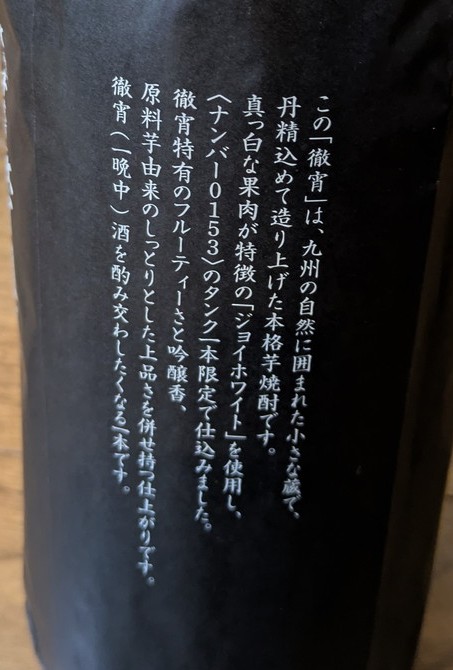 この「徹宵」は、九州の自然に囲まれた小さな蔵で、
丹精込めて造り上げた本格芋焼酎です。
真っ白な果肉が特徴の「ジョイホワイト」を使用し、
〈ナンバー0153〉のタンク一本限定で仕込みました。
徹宵特有のフルーティーさと吟醸香、
原料芋由来のしっとりとした上品さを併せ持つ仕上がりです。
徹宵（一晩中）酒を酌み交わしたくなる一本です。